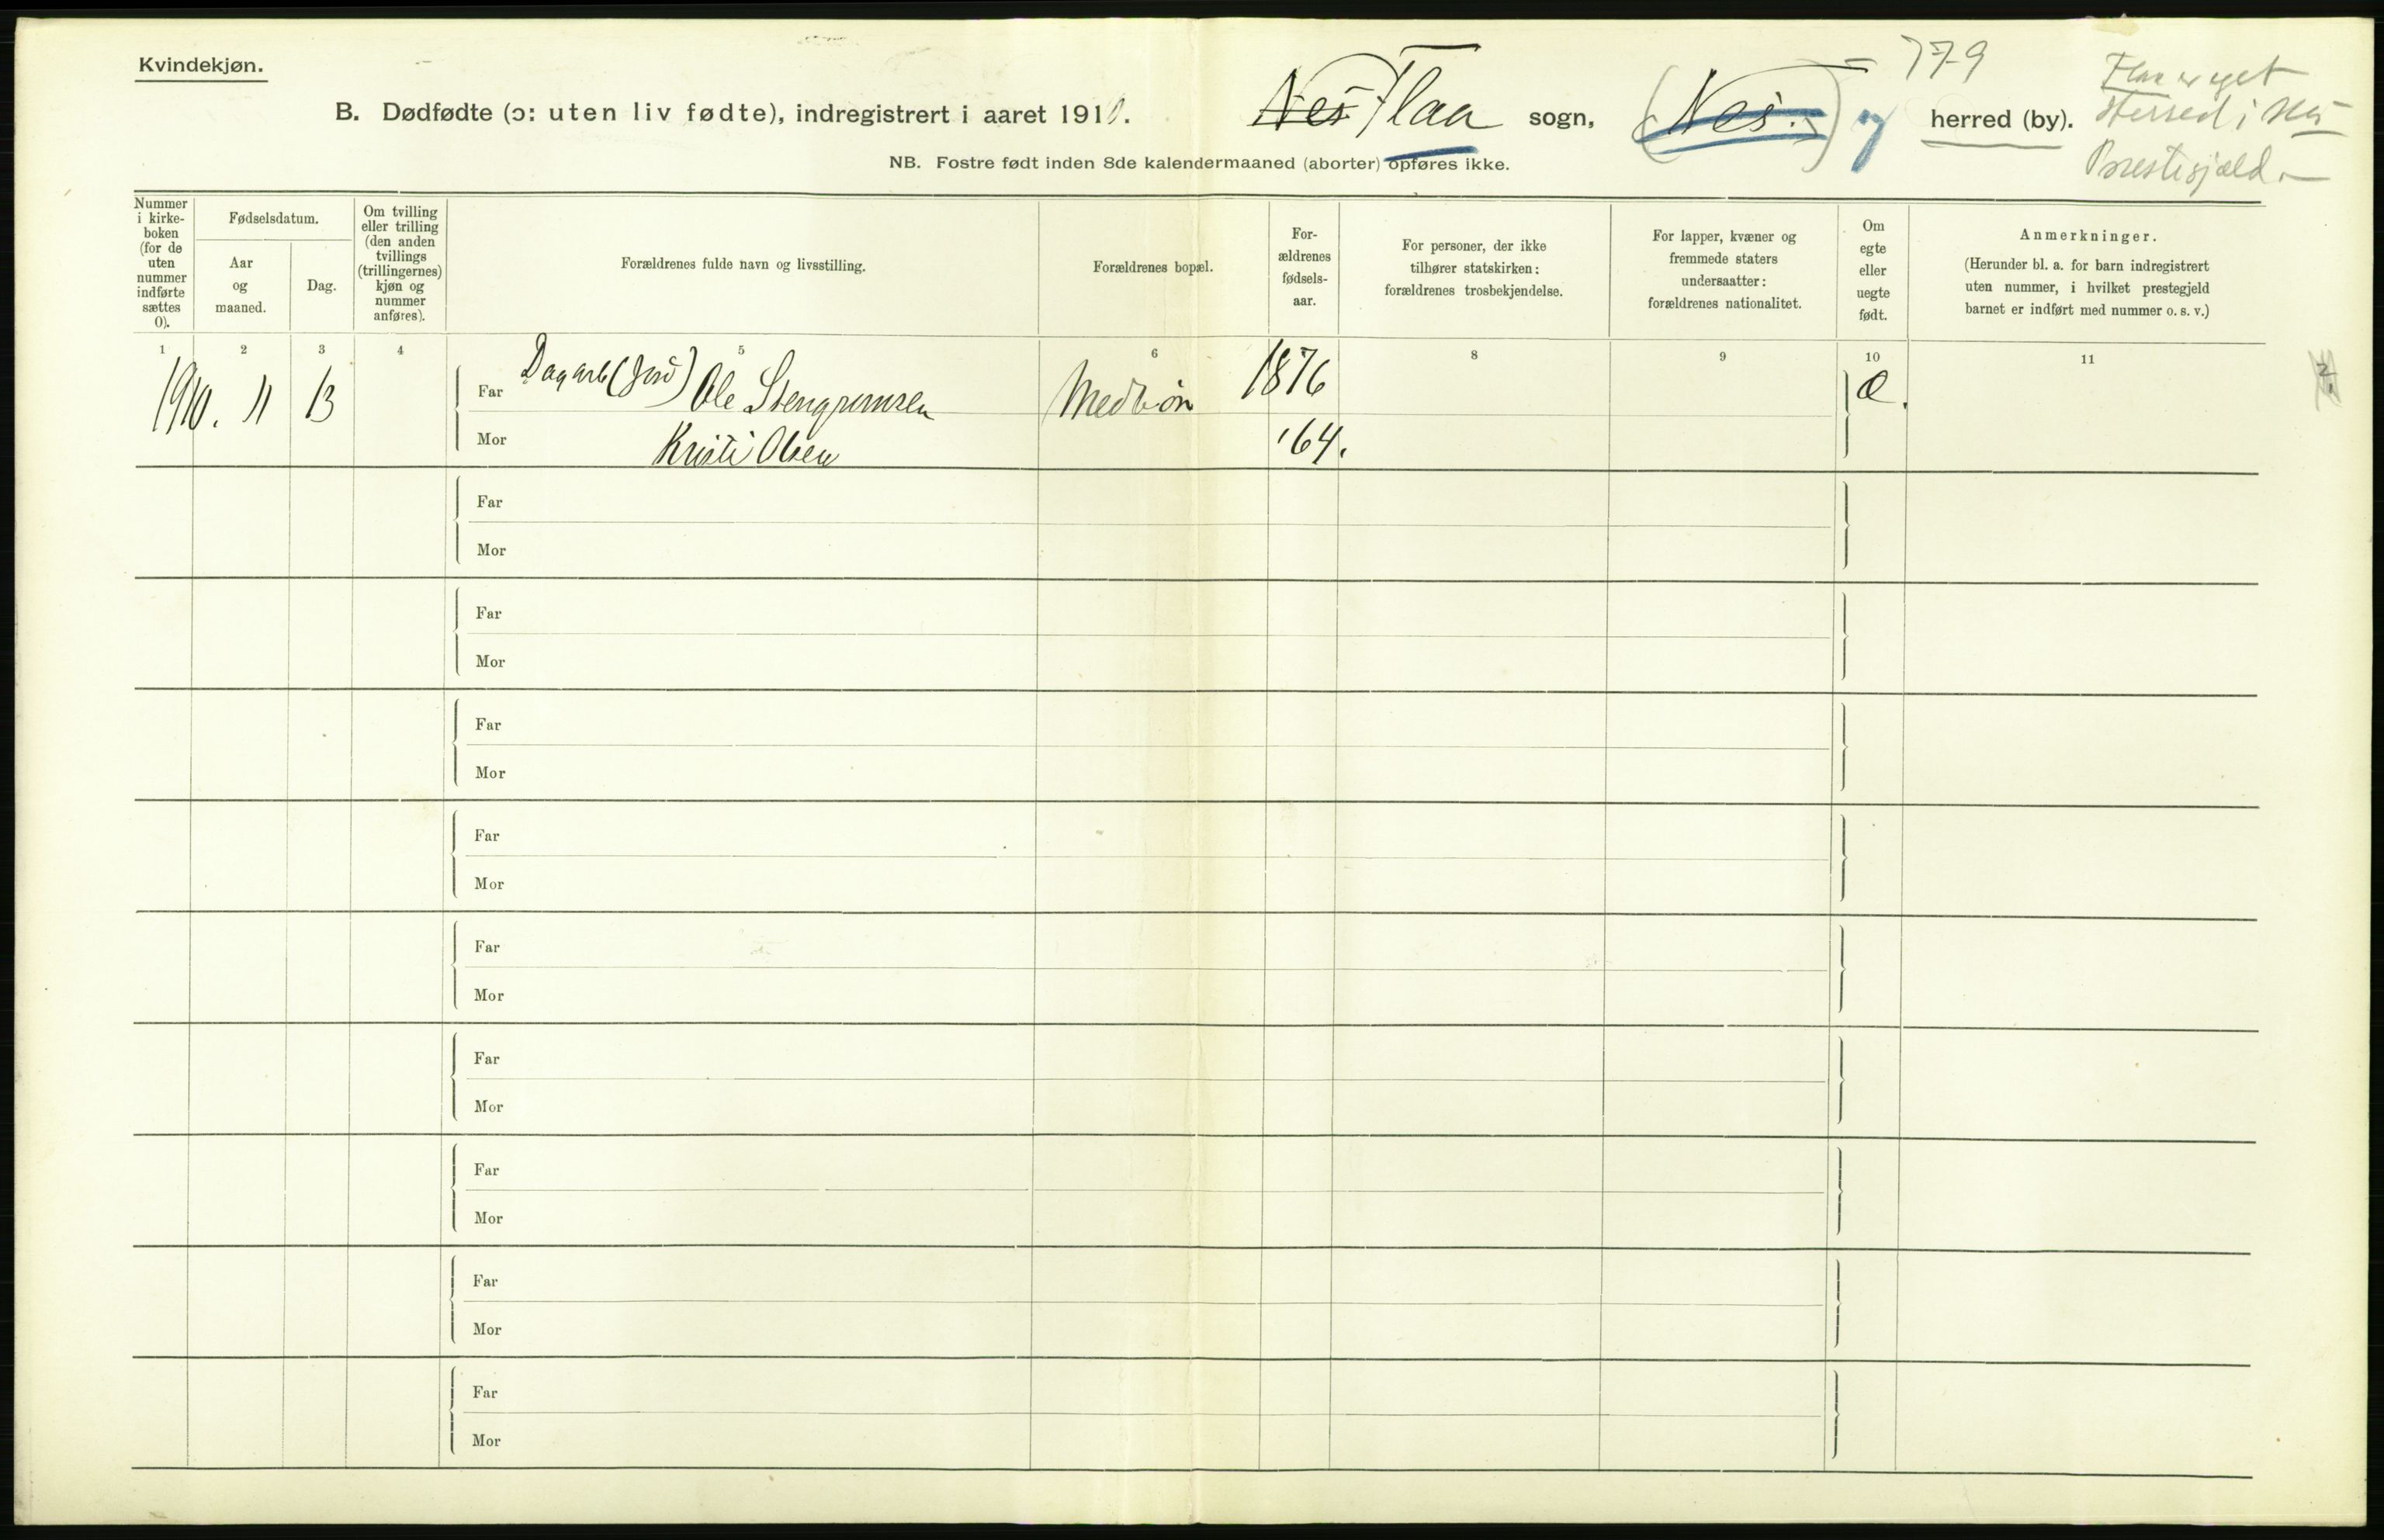 Kvindekjøn.
B. Dødfødte (ɔ: uten liv fødte), indregistrert i aaret 1910. Nes Flaa sogn, (Nes.) herred (by).
779
Flaa er eget
Herred i Nes
Prestegjæld.
NB. Fostre født inden 8de kalendermaaned (aborter) opføres ikke.
Nummer i kirke-boken (for de uten nummer indførte sættes 0).
Fødselsdatum.
Aar og maaned.
Dag.
Om tvilling eller trilling (den anden tvillings (trillingernes) kjøn og nummer anføres).
Forældrenes fulde navn og livsstilling.
Forældrenes bopæl.
For-ældrenes fødsels-aar.
For personer, der ikke tilhører statskirken: forældrenes trosbekjendelse.
For lapper, kvæner og fremmede staters undersaatter: forældrenes nationalitet.
Om egte eller uegte født.
Anmerkninger.
(Herunder bl. a. for barn indregistrert uten nummer, i hvilket prestegjeld barnet er indført med nummer o. s. v.)
1 2 3 4 5 6 8 9 10 11
1910. 11 13 Far Dagarb (Jord) Ole Stengrimsen Medbøn 1876 Æ.
Mor Kristi Olsen '64.
Far
Mor
Far
Mor
Far
Mor
Far
Mor
Far
Mor
Far
Mor
Far
Mor
Far
Mor
Far
Mor